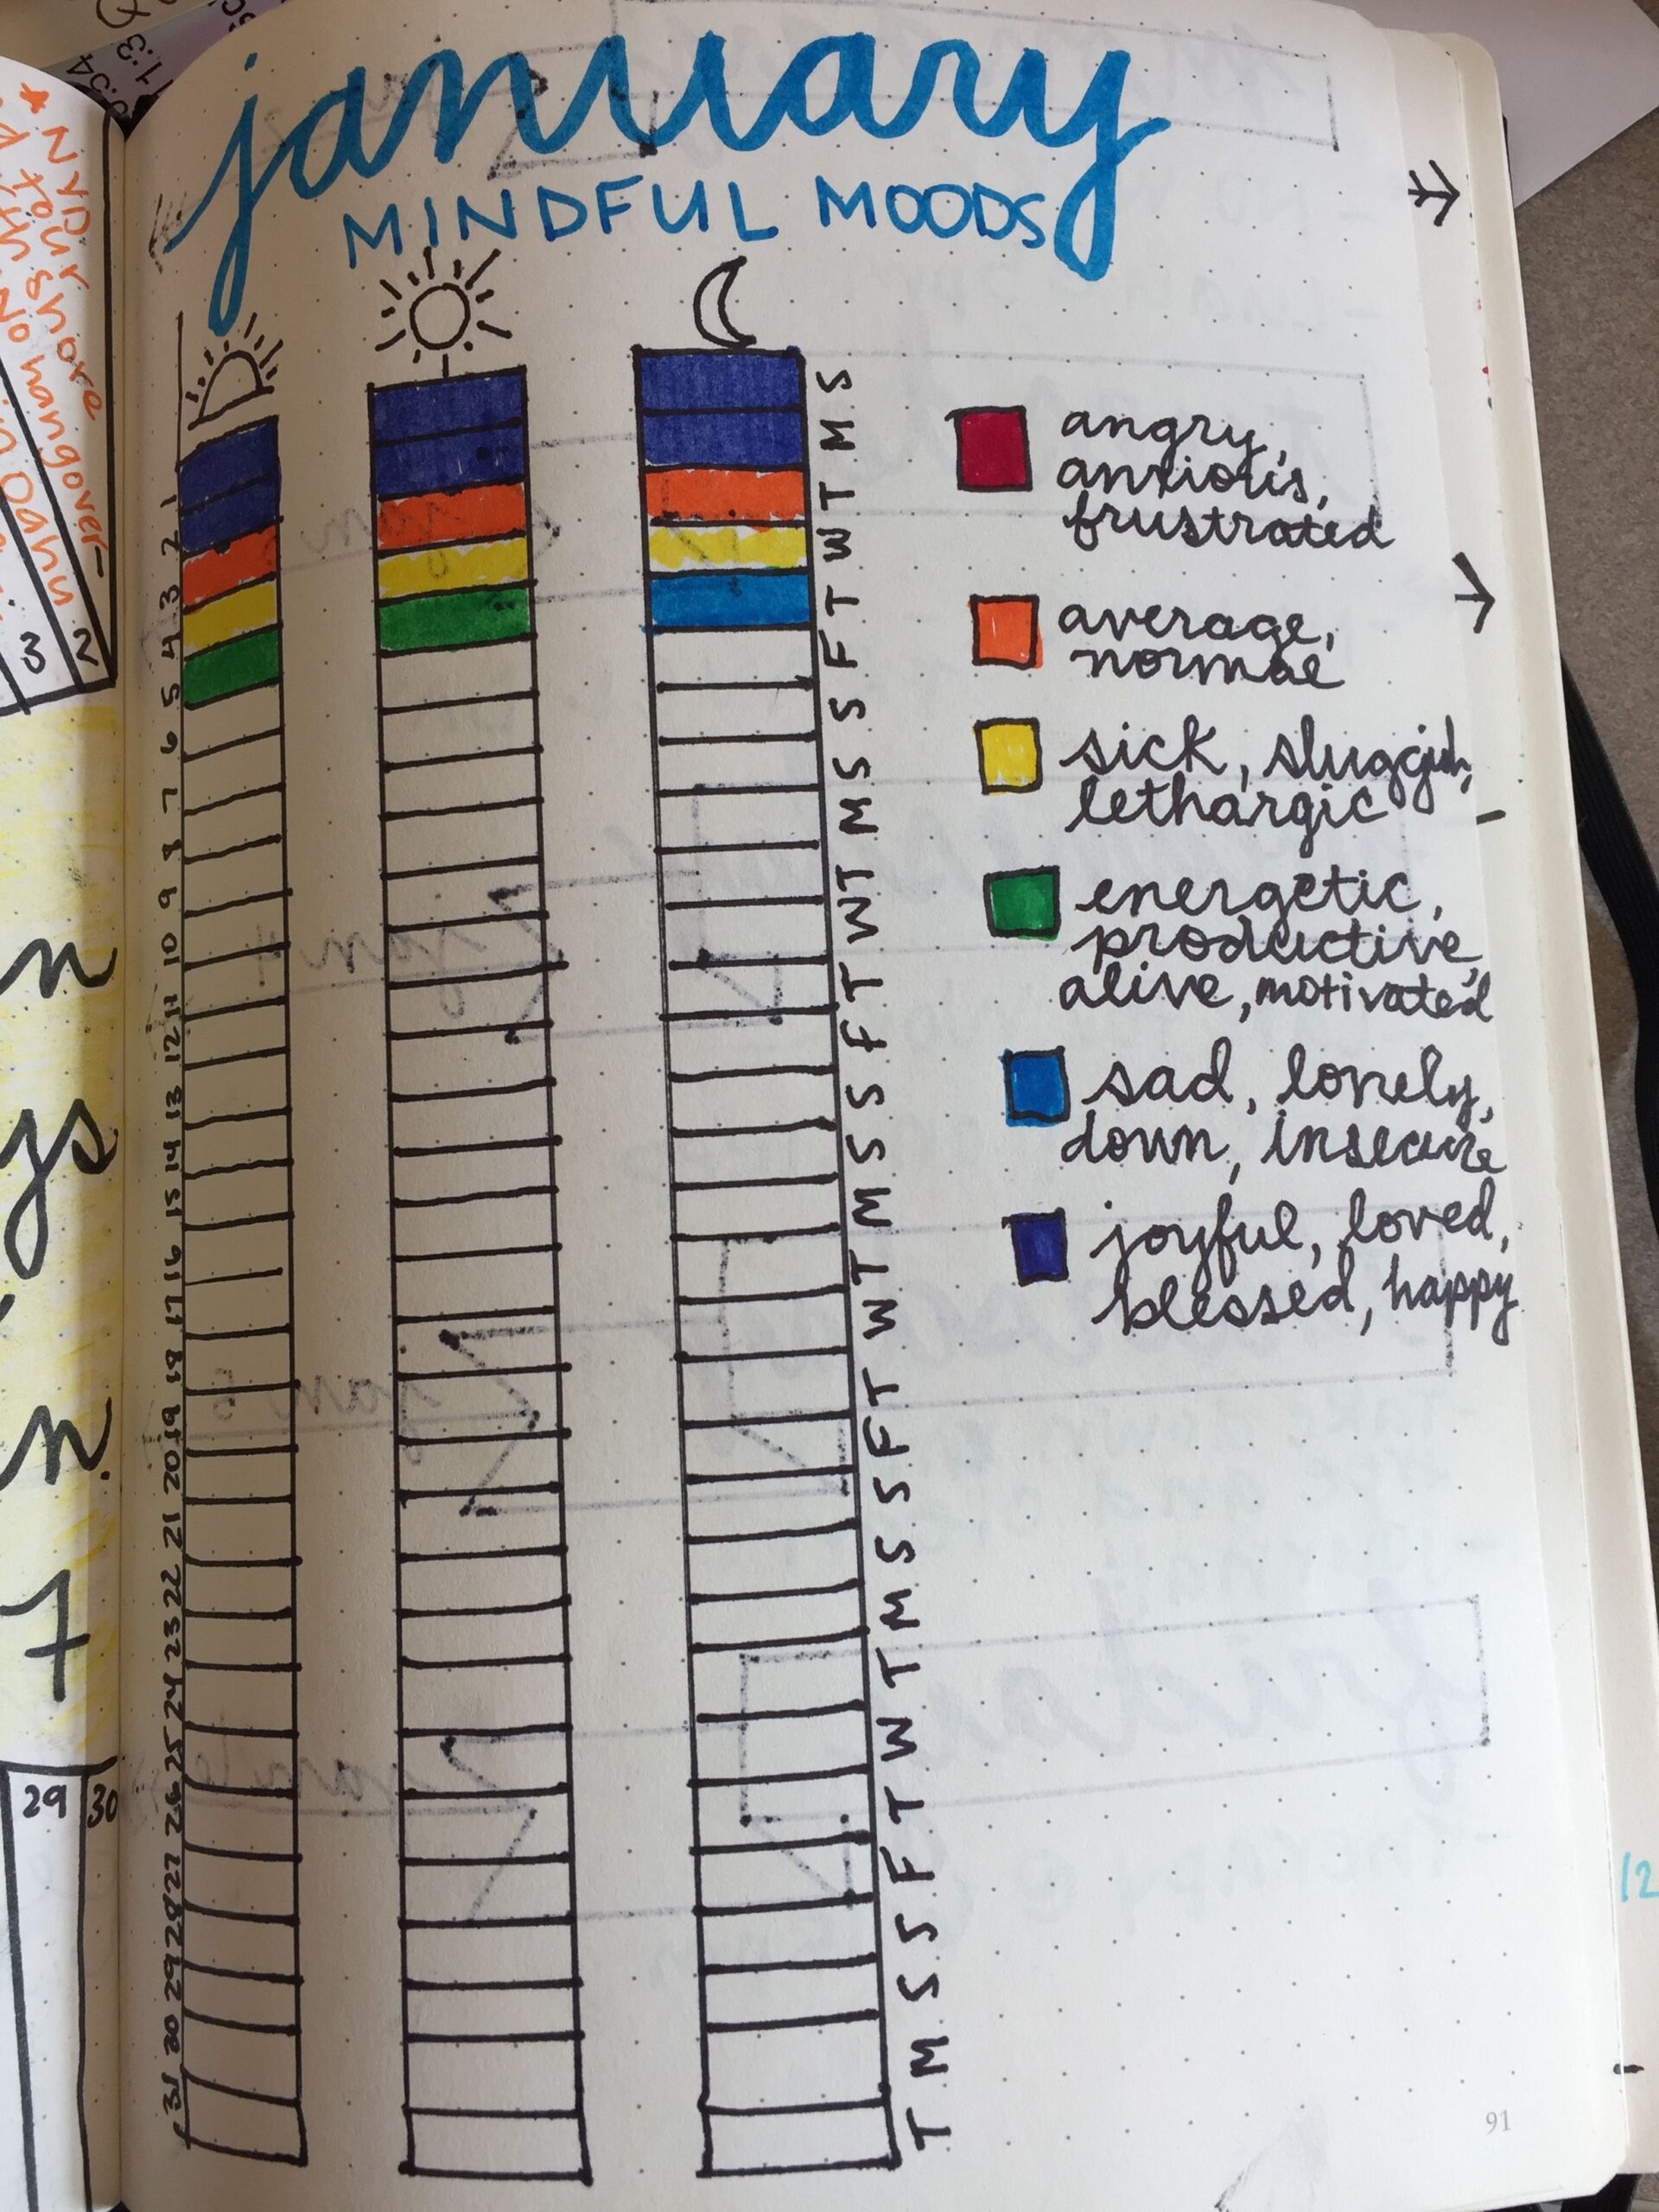 january
MINDFUL MOODS
angry,
anxious,
frustrated
average,
normal
sick, sluggish,
lethargic
energetic,
productive,
alive, motivated
sad, lonely,
down, insecure
joyful, loved,
blessed, happy
1
2
3
4
5
6
7
8
9
10
11
12
13
14
15
16
17
18
19
20
21
22
23
24
25
26
27
28
29
30
31
S
M
T
W
T
F
S
S
M
T
W
T
F
S
S
M
T
W
T
F
S
S
M
T
W
T
F
S
S
M
T
91
3 2
n
ys
n
7
29 30
12
hangover